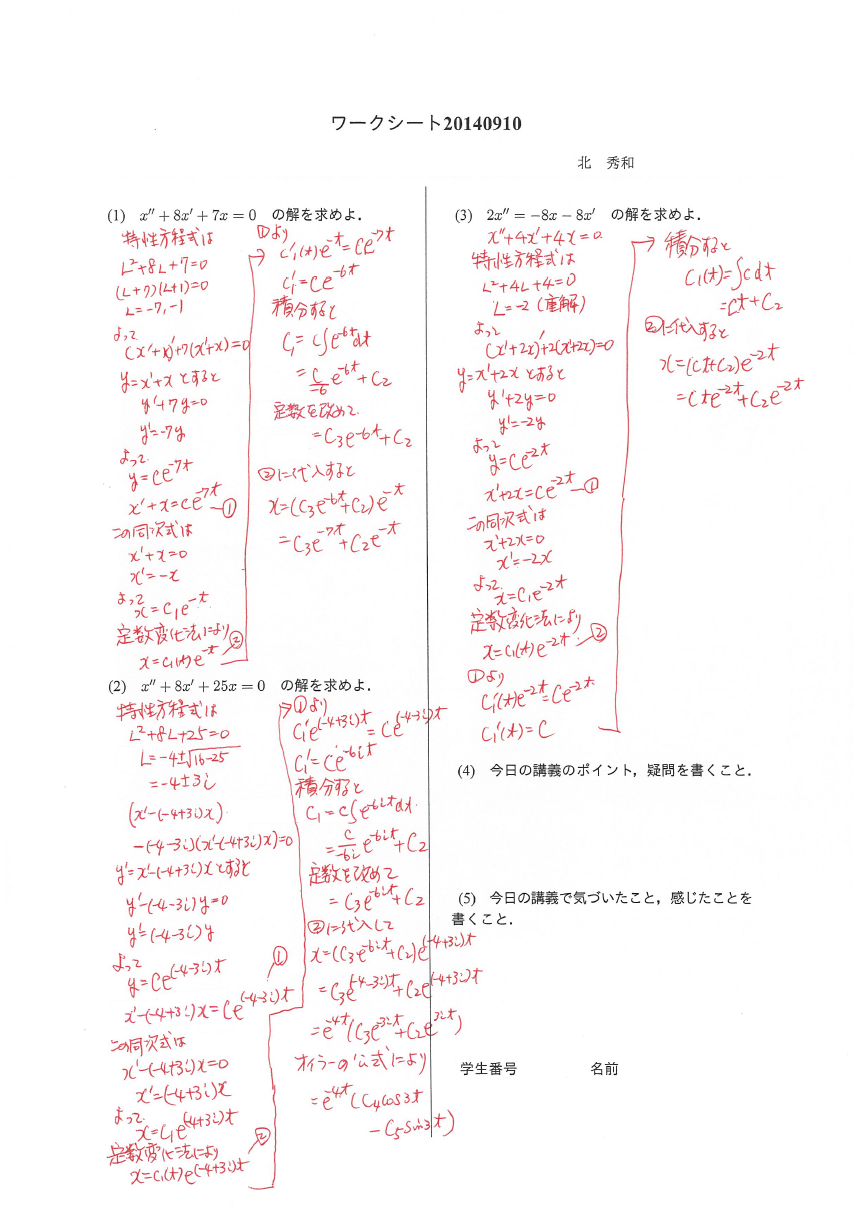 ワークシート20140910
北 秀和
(1) x″ + 8x′ + 7x = 0 の解を求めよ.
特性方程式は
L²+8L+7=0
(L+7)(L+1)=0
L=-7,-1
よって
(x′+x)′+7(x′+x)=0
y=x′+x とすると
y′+7y=0
y′=-7y
よって
y=Ce^{-7t}
x′+x=Ce^{-7t} ―①
この同次式は
x′+x=0
x′=-x
よって
x=C₁e^{-t}
定数変化法により ②
x=C₁(t)e^{-t}
①より
→ C₁′(t)e^{-t}=Ce^{-7t}
C₁′=Ce^{-6t}
積分すると
C₁=C∫e^{-6t}dt
=\frac{C}{-6}e^{-6t}+C₂
定数を改めて
=C₃e^{-6t}+C₂
②に代入すると
x=(C₃e^{-6t}+C₂)e^{-t}
=C₃e^{-7t}+C₂e^{-t}
(2) x″ + 8x′ + 25x = 0 の解を求めよ.
特性方程式は
L²+8L+25=0
L=-4±√16-25
=-4±3i
(x′-(-4+3i)x)′
-(-4-3i)(x′-(-4+3i)x)=0
y′=x′-(-4+3i)x とすると
y′-(-4-3i)y=0
y′=(-4-3i)y
よって
y=Ce^{(-4-3i)t} ①
x′-(-4+3i)x=Ce^{(-4-3i)t}
この同次式は
x′-(-4+3i)x=0
x′=(-4+3i)x
よって
x=C₁e^{(-4+3i)t}
定数変化法により ②
x=C₁(t)e^{(-4+3i)t}
→①より
C₁′e^{(-4+3i)t}=Ce^{(-4-3i)t}
C₁′=Ce^{-6it}
積分すると
C₁=C∫e^{-6it}dt
=\frac{C}{-6i}e^{-6it}+C₂
定数を改めて
=C₃e^{-6it}+C₂
②に代入して
x=(C₃e^{-6it}+C₂)e^{(-4+3i)t}
=C₃e^{(-4-3i)t}+C₂e^{(-4+3i)t}
=e^{-4t}(C₃e^{-3it}+C₂e^{3it})
オイラーの公式により
=e^{-4t}(C₄cos3t
-C₅sin3t)
(3) 2x″ = −8x − 8x′ の解を求めよ.
x″+4x′+4x=0
特性方程式は
L²+4L+4=0
L=-2 (重解)
よって
(x′+2x)′+2(x′+2x)=0
y=x′+2x とすると
y′+2y=0
y′=-2y
よって
y=Ce^{-2t}
x′+2x=Ce^{-2t} ―①
この同次式は
x′+2x=0
x′=-2x
よって
x=C₁e^{-2t}
定数変化法により
x=C₁(t)e^{-2t} ②
①より
C₁′(t)e^{-2t}=Ce^{-2t}
C₁′(t)=C
→ 積分すると
C₁(t)=∫Cdt
=Ct+C₂
②に代入すると
x=(Ct+C₂)e^{-2t}
=Cte^{-2t}+C₂e^{-2t}
(4) 今日の講義のポイント，疑問を書くこと.
(5) 今日の講義で気づいたこと，感じたことを
書くこと.
学生番号 名前